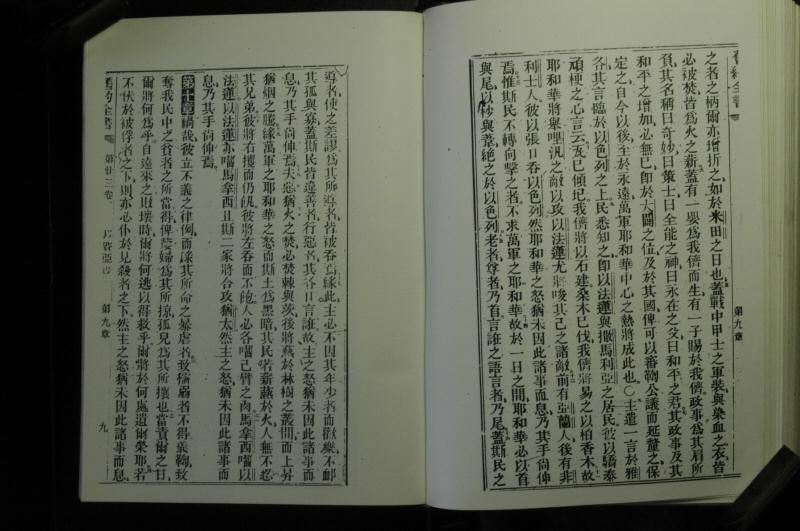 舊約全書
第九章
之者之柄爾亦增折之如於米田之日也蓋戰中甲士之軍裝與染血之衣皆
必被焚皆爲火之薪蓋有一嬰爲我儕而生有一子賜於我儕政事爲其肩所
負其名稱曰奇妙曰策士曰全能之神曰永在之父曰和平之君其政事及其
和平之增加必無已卽於大闢之位及於其國俾可以審鞫公議而延釐之保
定之自今以後至於永遠萬軍耶和華中心之熱將成此也〇主遣一言於雅
各其言臨於以色列之上民悉知之卽以法蓮與撒馬利亞之居民彼以驕泰
頑梗之心言云瓦已傾圮我儕將以石建桑木已伐我儕將易之以柏香木故
耶和華將舉哩汎之敵以攻以法蓮尤將唆其己之諸敵前有亞蘭人後有非
利士人彼以張口吞以色列然耶和華之怒猶未因此諸事而息乃其手尙伸
焉惟斯民不轉向擊之者不求萬軍之耶和華故於一日之間耶和華必以首
與尾以杪與葦絕之於以色列老者尊者乃首言誑之語言者乃尾蓋斯民之
導者使之差謬爲其所導者皆被吞焉緣此主必不因其年少者而歡樂不卹
其孤與寡蓋斯民皆違善者行惡者其各口言誑故主之怒猶未因此諸事而
息乃其手尙伸焉夫惡猶火之焚必焚棘與茨後將燕於林樹之叢間而上昇
猶烟之騰緣萬軍之耶和華之怒而斯土爲黑暗其民若薪爇於火人無不忍
其兄弟彼將右攫而仍飢彼將左吞而不飽人必各囓己臂之肉馬拿西囓以
法蓮以法蓮亦囓馬拿西且斯二家將合攻猶太然主之怒猶未因此諸事而
息乃其手尙伸焉
第十章 禍哉彼立不義之律例而錄其所命之暴虐者致懦弱者不得義鞫致
奪我民中之貧者之所當得俾嫠婦爲其所掠孤兒爲其所攘也當責爾之日
爾將何爲乎自遠來之敗壞時爾將何逃以得救乎爾將於何處遺爾榮耶若
不伏於被俘者之下則亦必仆於見殺者之下然主之怒猶未因此諸事而息
舊約全書
第廿三卷
以賽亞書
第九章
九